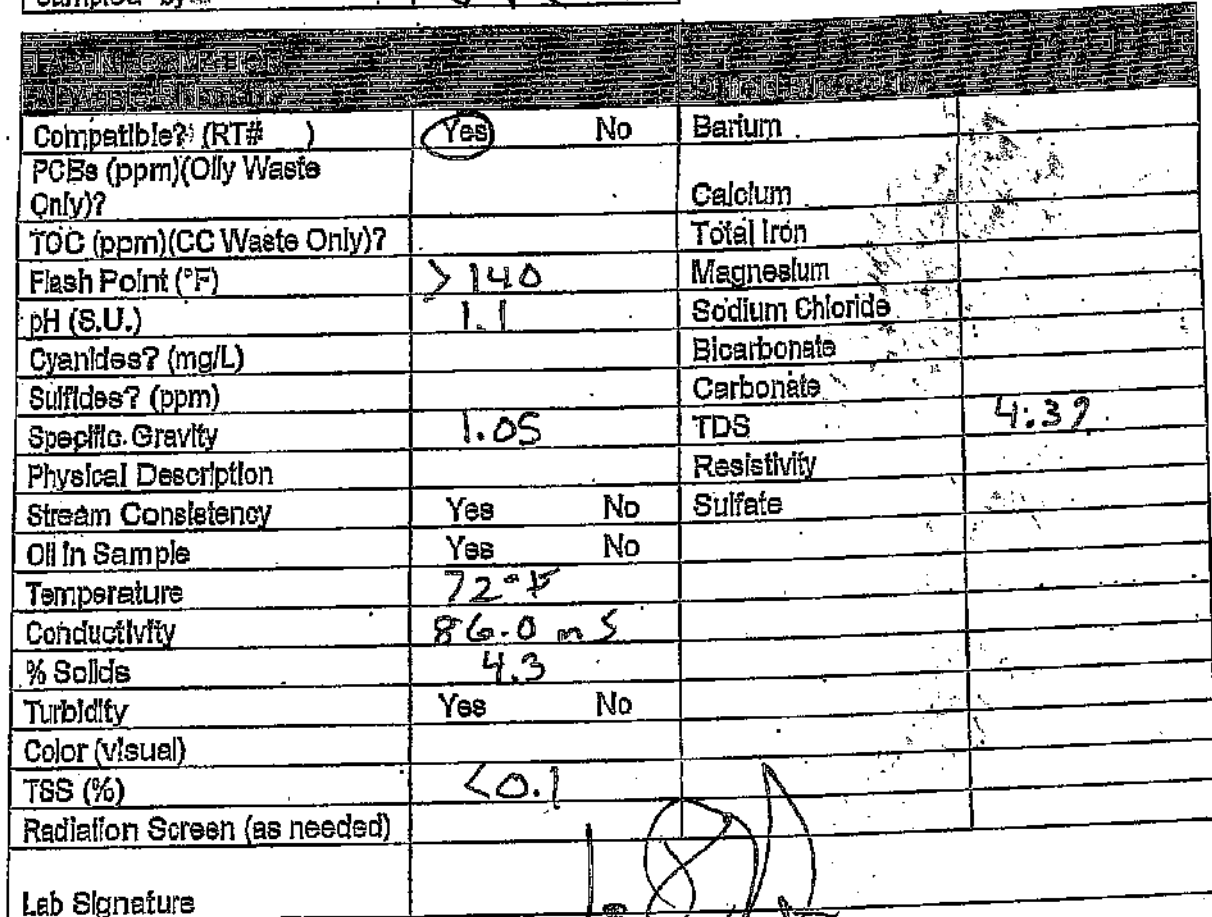 Sampled by
Compatible? (RT# ) Yes No Barium
PCBs (ppm)(Oily Waste
Only)? Calcium
TOC (ppm)(CC Waste Only)? Total Iron
Flash Point (°F) >140 Magnesium
pH (S.U.) 1.1 Sodium Chloride
Cyanides? (mg/L) Bicarbonate
Sulfides? (ppm) Carbonate
Specific Gravity 1.05 TDS 4:39
Physical Description Resistivity
Stream Consistency Yes No Sulfate
Oil in Sample Yes No
Temperature 72°F
Conductivity 86.0 mS
% Solids 4.3
Turbidity Yes No
Color (visual)
TSS (%) <0.1
Radiation Screen (as needed)
Lab Signature